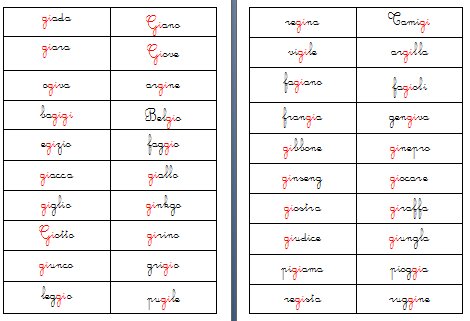 giada Giano
giara Giove
ogiva argine
bagigi Belgio
egizio faggio
giacca giallo
giglio ginkgo
Giotto girino
giunco grigio
leggio pugile
regina Tamigi
vigile argilla
fagiano fagioli
frangia gengiva
gibbone ginepro
ginseng giocare
giostra giraffa
giudice giungla
pigiama pioggia
regista ruggine